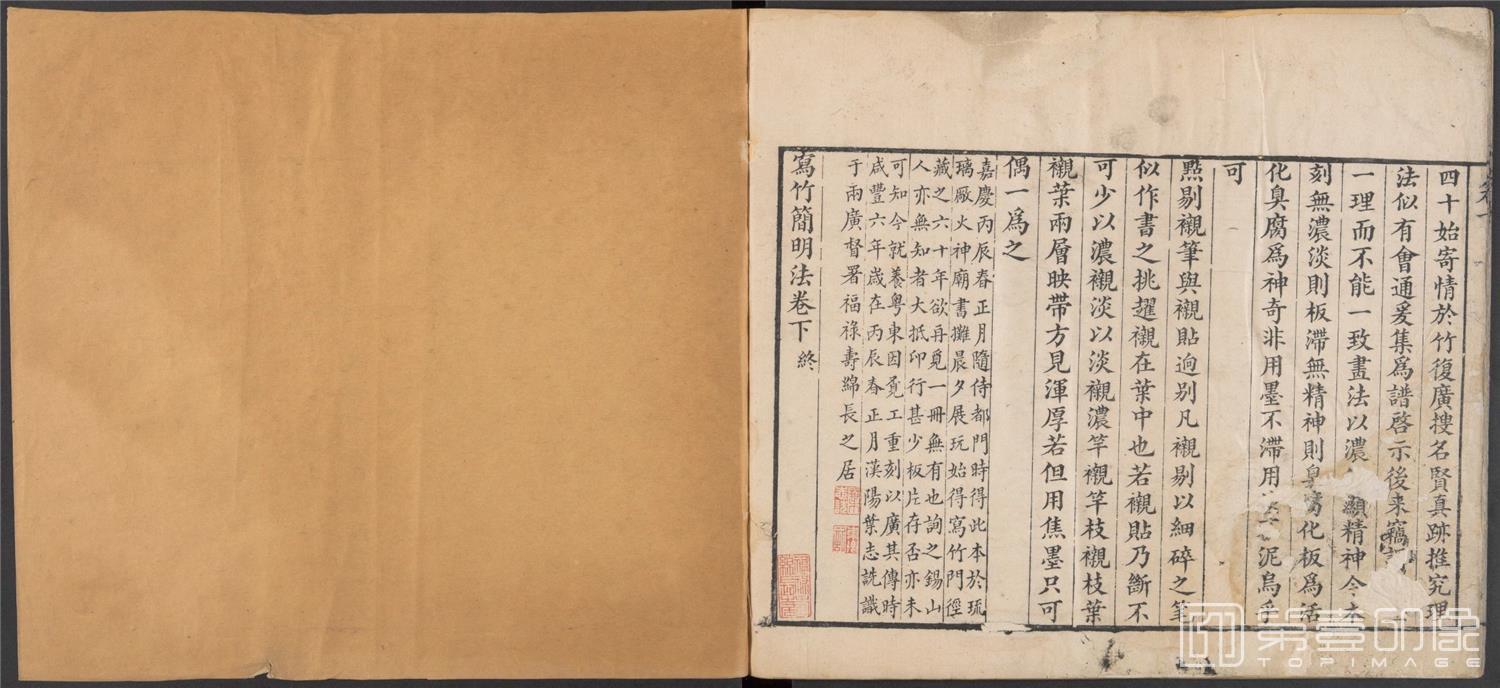 四十始寄情於竹復廣搜名賢真跡推究理
法似有會通爰集爲譜啓示後来竊
一理而不能一致畫法以濃 顯精神今木
刻無濃淡則板滯無精神則臭腐化板爲活
化臭腐爲神奇非用墨不滯用 泥烏乎
可
點剔襯筆與襯貼迥别凡襯剔以細碎之筆
似作書之挑趯襯在葉中也若襯貼乃斷不
可少以濃襯淡以淡襯濃竿襯竿枝襯枝葉
襯葉兩層映帶方見渾厚若但用焦墨只可
偶一爲之
嘉慶丙辰春正月隨侍都門時得此本於琉
璃厰火神廟書攤晨夕展玩始得寫竹門徑
藏之六十年欲再覓一冊無有也詢之錫山
人亦無知者大抵印行甚少板片存否亦未
可知今就養粤東因覓工重刻以廣其傳時
咸豐六年歲在丙辰春正月漢陽葉志詵識
于兩廣督署福祿壽綿長之居
寫竹簡明法卷下 終
第壹印象
TOPIMAGE